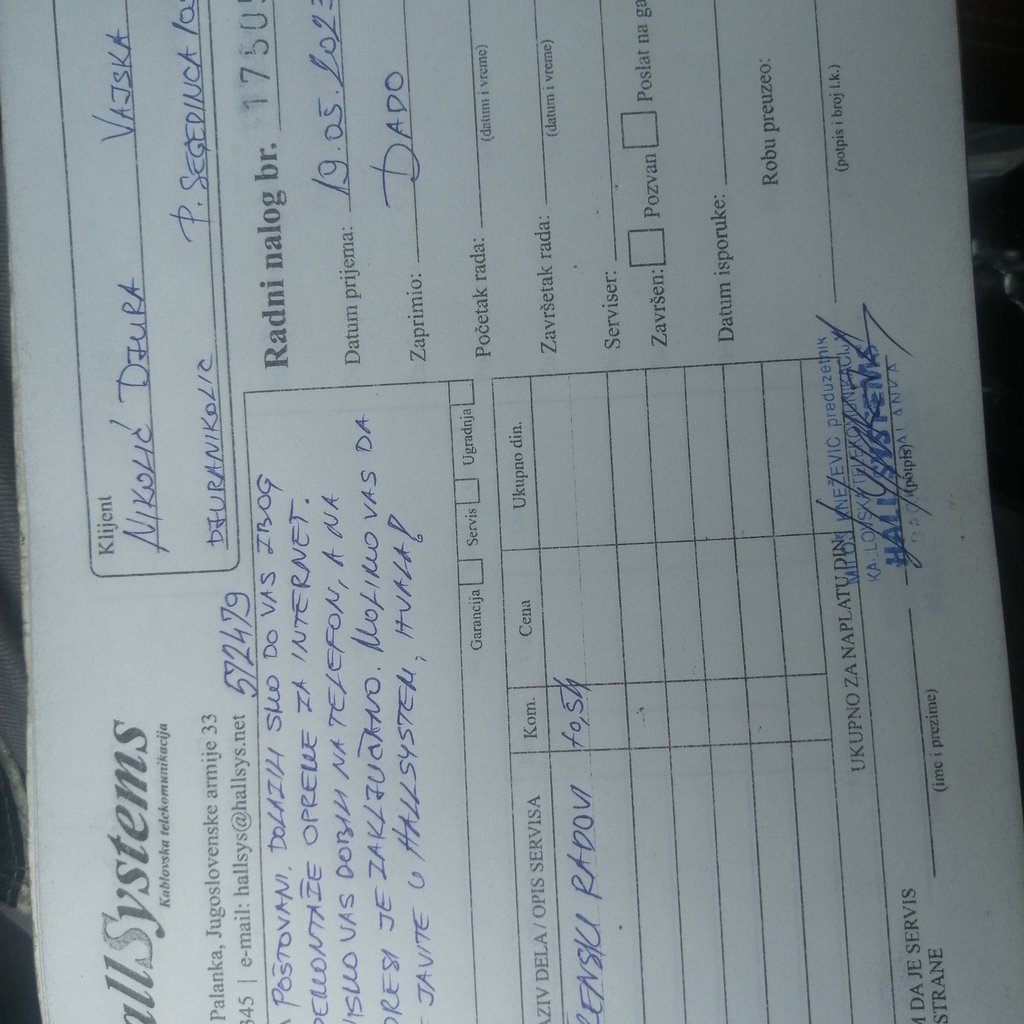 allSystems
Kablovska telekomunikacija
Palanka, Jugoslovenske armije 33
345 | e-mail: hallsys@hallsys.net
572479
Klijent
NIKOLIĆ DJURA VAJSKA
DJURANIKOLIC P. SEGEDINCA
POŠTOVANI. DOLAZILI SMO DO VAS ZBOG
DEMONTAŽE OPREME ZA INTERNET.
NISMO VAS DOBILI NA TELEFON, A NA
DRESI JE ZAKLJUČANO. MOLIMO VAS DA
JAVITE U HALLSYSTEM, HVALA!
Garancija Servis Ugradnja
Radni nalog br. 1750
Datum prijema: 19.05.2023
Zaprimio: DADO
Početak rada:
(datum i vreme)
Završetak rada:
(datum i vreme)
Serviser:
Završen: Pozvan Poslat na ga
Datum isporuke:
Robu preuzeo:
(potpis i broj l.k.)
AZIV DELA / OPIS SERVISA Kom. Cena Ukupno din.
RENSKI RADOVI
UKUPNO ZA NAPLATU DIN
KNEŽEVIĆ preduzetnik
(potpis)
(ime i prezime)
M DA JE SERVIS
STRANE